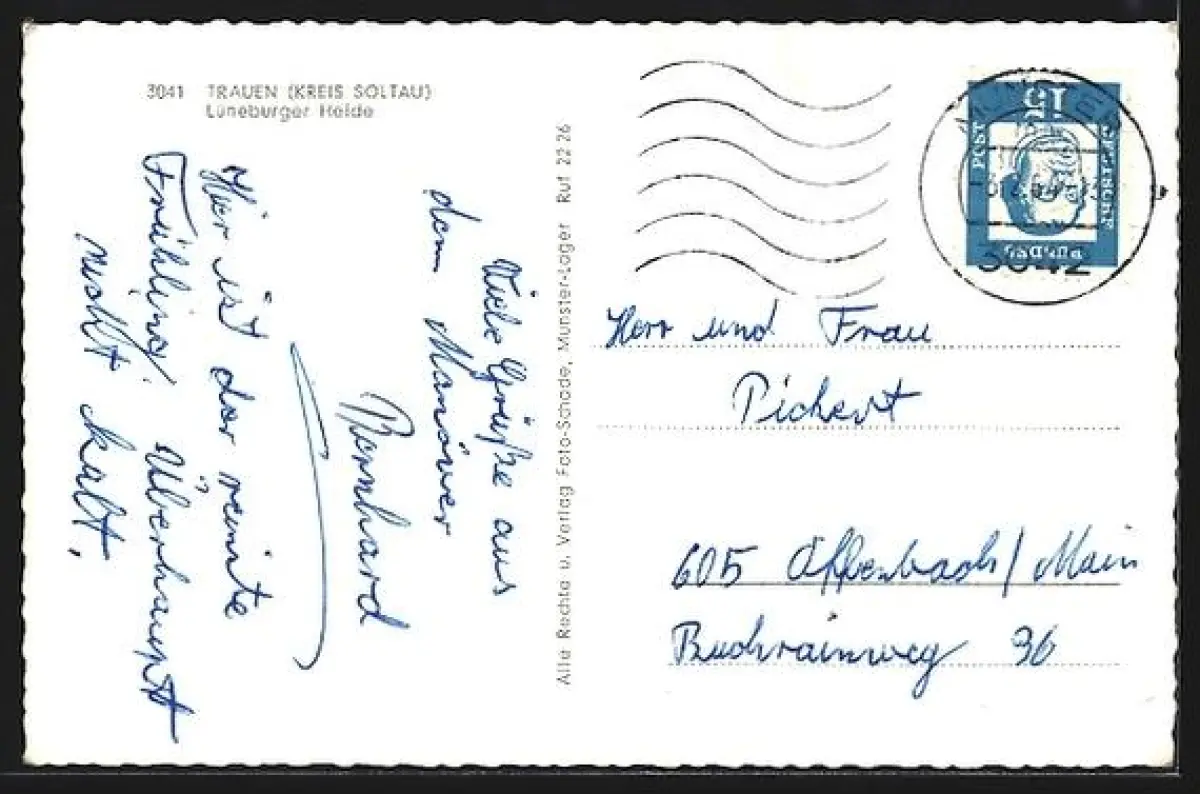 3041 TRAUEN (KREIS SOLTAU)
Lüneburger Heide
Viele Grüße aus
dem Manöver
Bernhard
Hier ist der reinste
Frühling. Überhaupt
nicht kalt.
Alle Rechte u. Verlag Foto-Schade, Munster-Lager Ruf 22 26
MUNSTER
3042
15
DEUTSCHE
BUNDES
POST
Herr und Frau
Pichert
605 Offenbach/Main
Buchrainweg 96